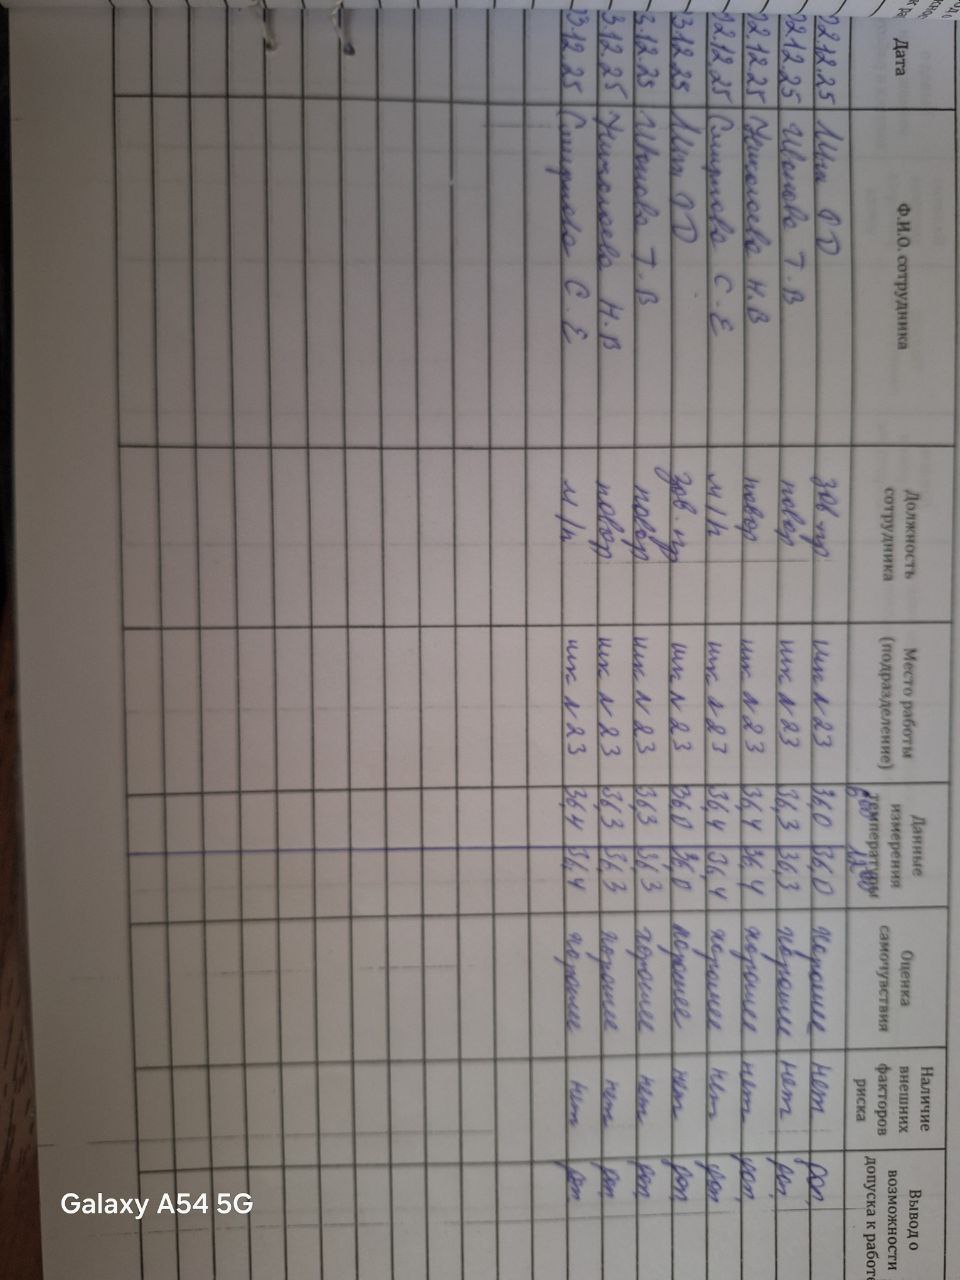 Дата Ф.И.О. сотрудника Должность сотрудника Место работы (подразделение) Данные измерения температуры Оценка самочувствия Наличие внешних факторов риска Вывод о возможности допуска к работе
02.12.25 О Д зав. пр шк N 23 36,0 36,0 хорошее нет
02.12.25 Иванова Т. В повар шк N 23 36,3 36,3 хорошее нет
02.12.25 Николаева Н. В повар шк N 23 36,4 36,4 хорошее нет
02.12.25 Смирнова С. Е м/п шк N 23 36,4 36,4 хорошее нет
03.12.25 О Д зав. пр шк N 23 36,0 36,0 хорошее нет
3.12.25 Иванова Т. В повар шк N 23 36,3 36,3 хорошее нет
3.12.25 Николаева Н. В повар шк N 23 36,3 36,3 хорошее нет
03.12.25 Смирнова С. Е м/п шк N 23 36,4 36,4 хорошее нет
Galaxy A54 5G